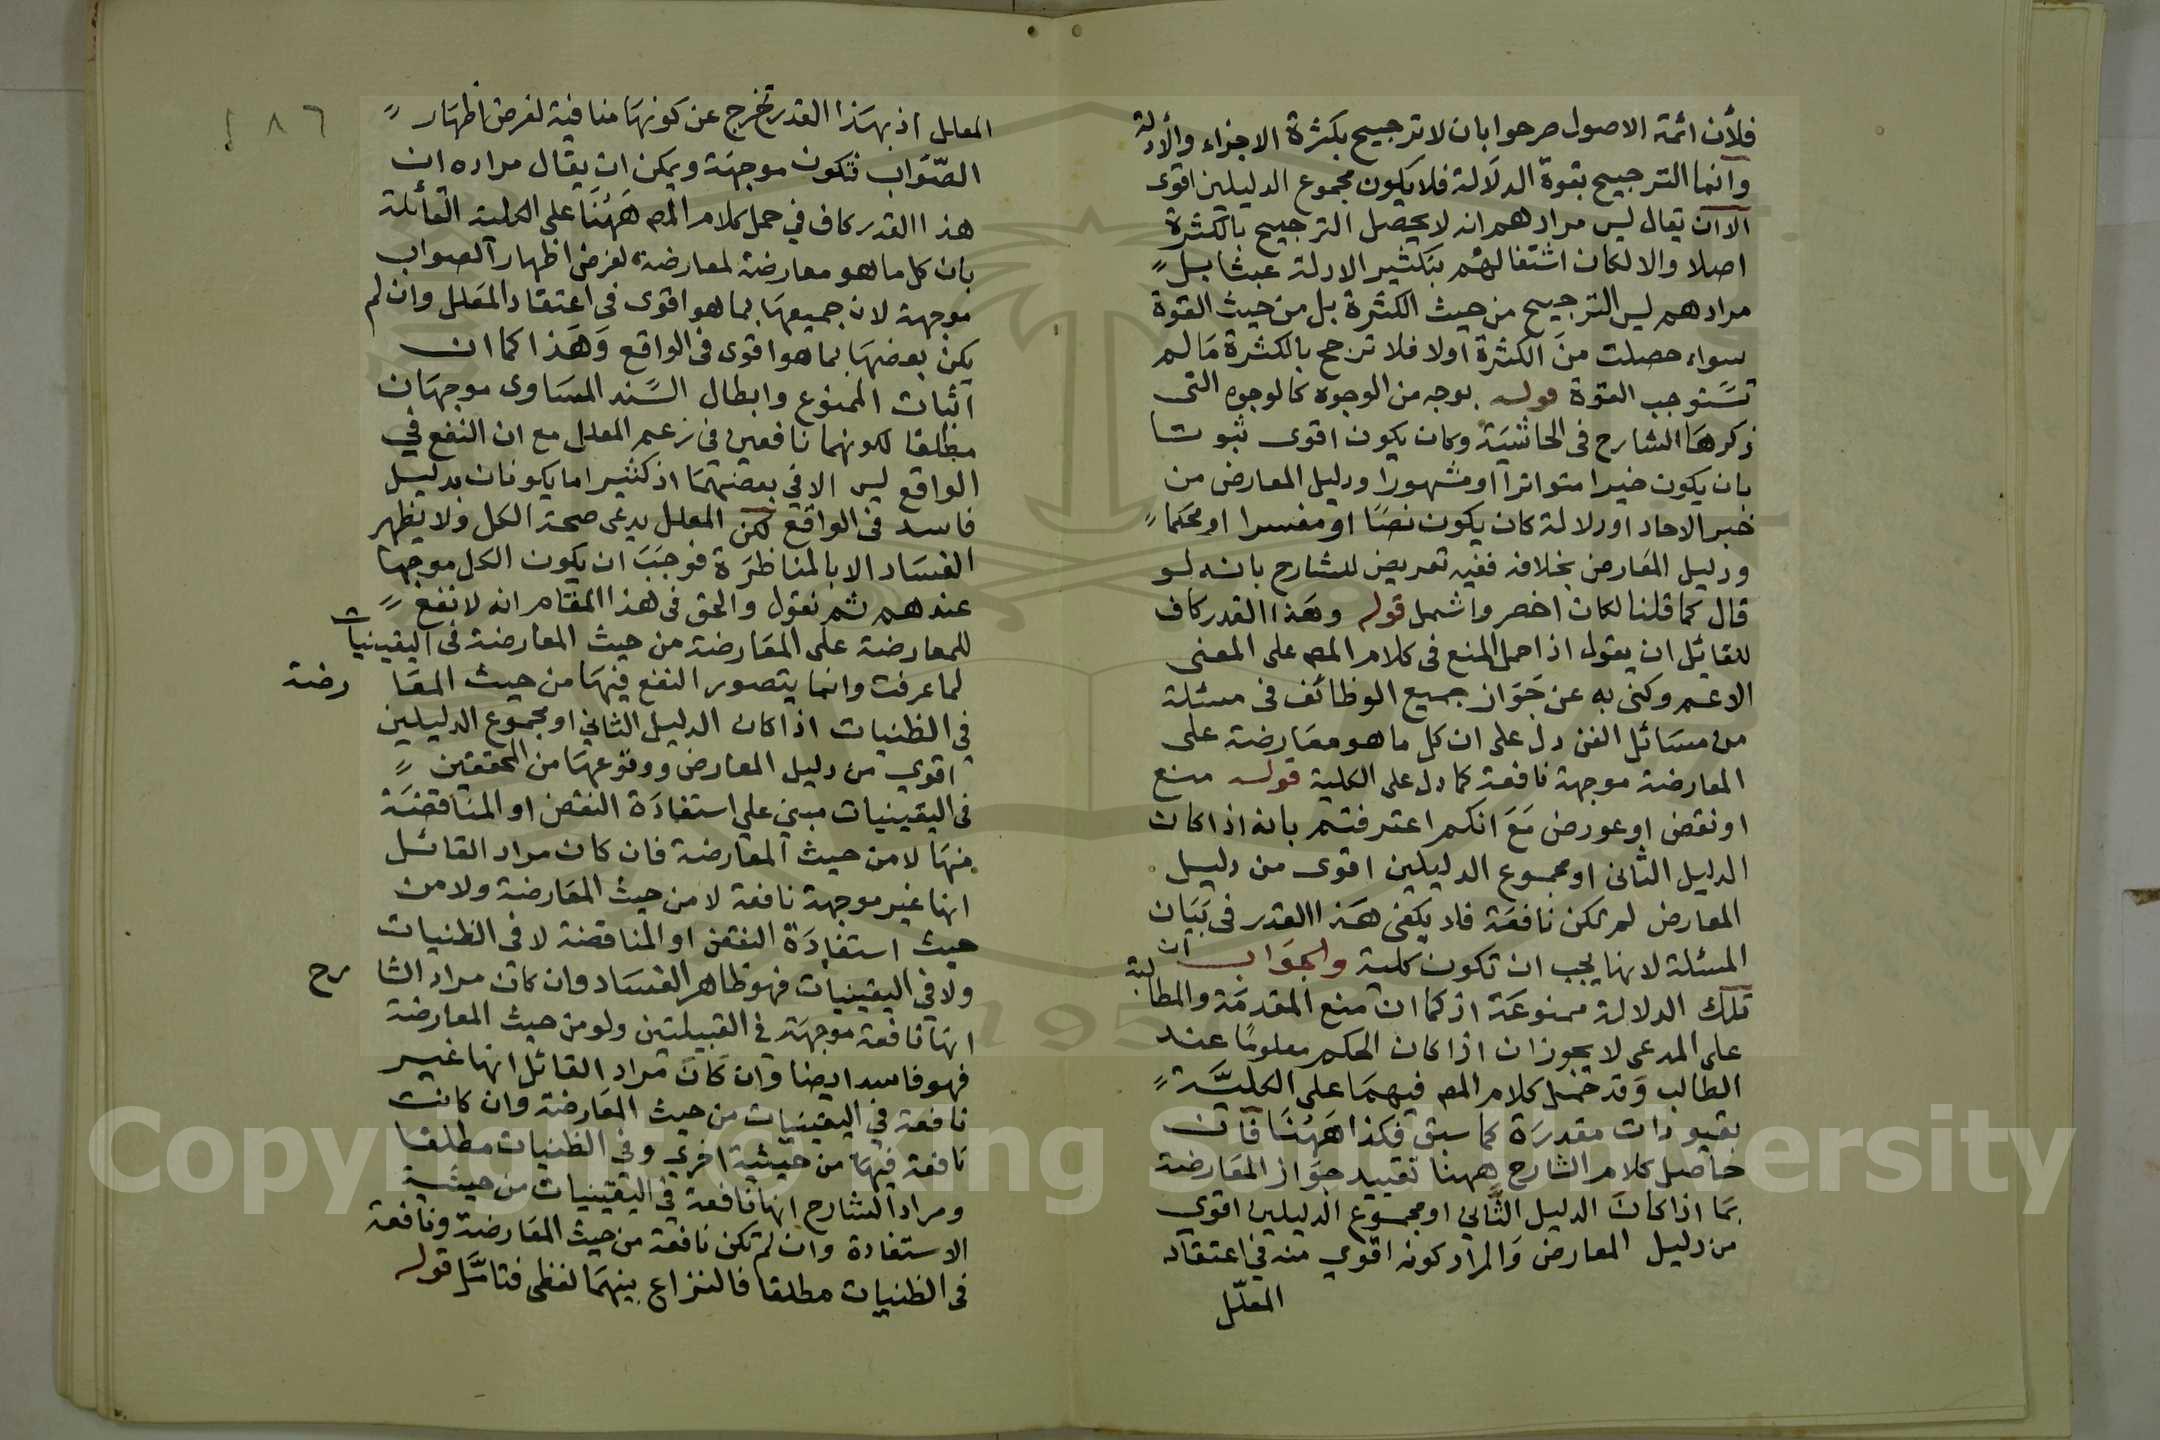 فلأن ائمة الاصول صرحوا بان لا ترجيح بكثرة الاجزاء والأدلة
وانما الترجيح بقوة الدلالة فلا يكون مجموع الدليلين اقوى
الا ان يقال ليس مرادهم انه لا يحصل الترجيح بالكثرة
اصلا والا لكان اشتغالهم بتكثير الادلة عبثا بل
مرادهم ليس الترجيح من حيث الكثرة بل من حيث القوة
سواء حصلت من الكثرة اولا فلا ترجح بالكثرة ما لم
تستوجب القوة قوله بوجه من الوجوه كالوجوه التى
ذكرها الشارح فى الحاشية وكان يكون اقوى ثبوتا
بان يكون خبرا متواترا او مشهورا ودليل المعارض من
خبر الاحاد او دلالة كان يكون نصا او مفسرا او محكما
ودليل المعارض بخلافه ففيه تعريض للشارح بانه لو
قال كما قلنا لكان اخصر واشمل قوله وهذا القدر كاف
للقائل ان يقول اذا حمل المنع فى كلام المص على المعنى
الاعم وكنى به عن جواز جميع الوظائف فى مسئلة
من مسائل الفن دل على ان كل ما هو معارضة على
المعارضة موجهة نافعة كما دل على الكلية قوله منع
او نقض او عورض مع انكم اعترفتم بانه اذا كان
الدليل الثانى او مجموع الدليلين اقوى من دليل
المعارض لم تكن نافعة فلا يكفى هذا القدر فى بيان
المسئلة لانها يجب ان تكون كلية والجواب ان
تلك الدلالة ممنوعة اذ كما ان منع المقدمة والمطالبة
على المدعى لا يجوزان اذا كان الحكم معلوما عند
الطالب وقد حمل كلام المص فيهما على الكلية
بقيودات مقدرة كما سبق فكذا ههنا فان
حاصل كلام الشارح ههنا تقييد جواز المعارضة
بما اذا كان الدليل الثانى او مجموع الدليلين اقوي
من دليل المعارض والمراد كونه اقوي منه في اعتقاد
المعلل
١٨٦
المعلل اذ بهذا القدر تخرج عن كونها منافية لغرض اظهار
الصواب فتكون موجهة ويمكن ان يقال مراده ان
هذا القدر كاف في حمل كلام المص ههنا على الكلية القائلة
بان كل ما هو معارضة لمعارضة لغرض اظهار الصواب
موجهة لان جميعها بما هو اقوى فى اعتقاد المعلل وان لم
يكن بعضها بما هو اقوى فى الواقع وهذا كما ان
اثبات الممنوع وابطال السند المساوى موجهان
مطلقا لكونهما نافعين فى زعم المعلل مع ان النفع في
الواقع ليس الا في بعضهما اذ كثيرا ما يكونان بدليل
فاسد فى الواقع لكن المعلل يدعى صحة الكل ولا يظهر
الفساد الا بالمناظرة فوجب ان يكون الكل موجها
عندهم ثم نقول والحق فى هذا المقام انه لا نفع
للمعارضة على المعارضة من حيث المعارضة فى اليقينيات
لما عرفت وانما يتصور النفع فيها من حيث المعا رضة
في الظنيات اذا كان الدليل الثاني او مجموع الدليلين
اقوي من دليل المعارض ووقوعها من المحققين
فى اليقينيات مبني علي استفادة النقض او المناقضة
منها لا من حيث المعارضة فان كان مراد القائل
انها غير موجهة نافعة لا من حيث المعارضة ولا من
حيث استفادة النقض او المناقضة لا فى الظنيات
ولا في اليقينيات فهو ظاهر الفساد وان كان مراد الشا رح
انها نافعة موجهة في القبيلتين ولو من حيث المعارضة
فهو فاسد ايضا وان كان مراد القائل انها غير
نافعة في اليقينيات من حيث المعارضة وان كانت
نافعة فيها من حيثية اخرى وفى الظنيات مطلقا
ومراد الشارح انها نافعة في اليقينيات من حيثية
الاستفادة وان لم تكن نافعة من حيث المعارضة ونافعة
فى الظنيات مطلقا فالنزاع بينهما لفظى فتامل قوله
Copyright © King Saud University
195